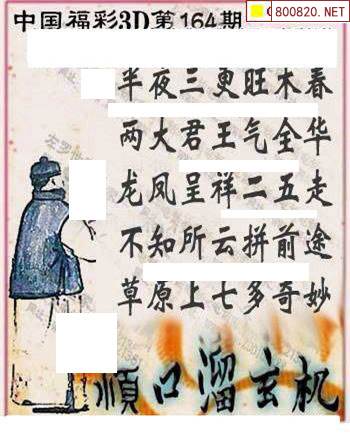 中国福彩3D第164期
800820.NET
半夜三更旺木春
两大君王气全华
龙凤呈祥二五走
不知所云拼前途
草原上七多奇妙
顺口溜玄机